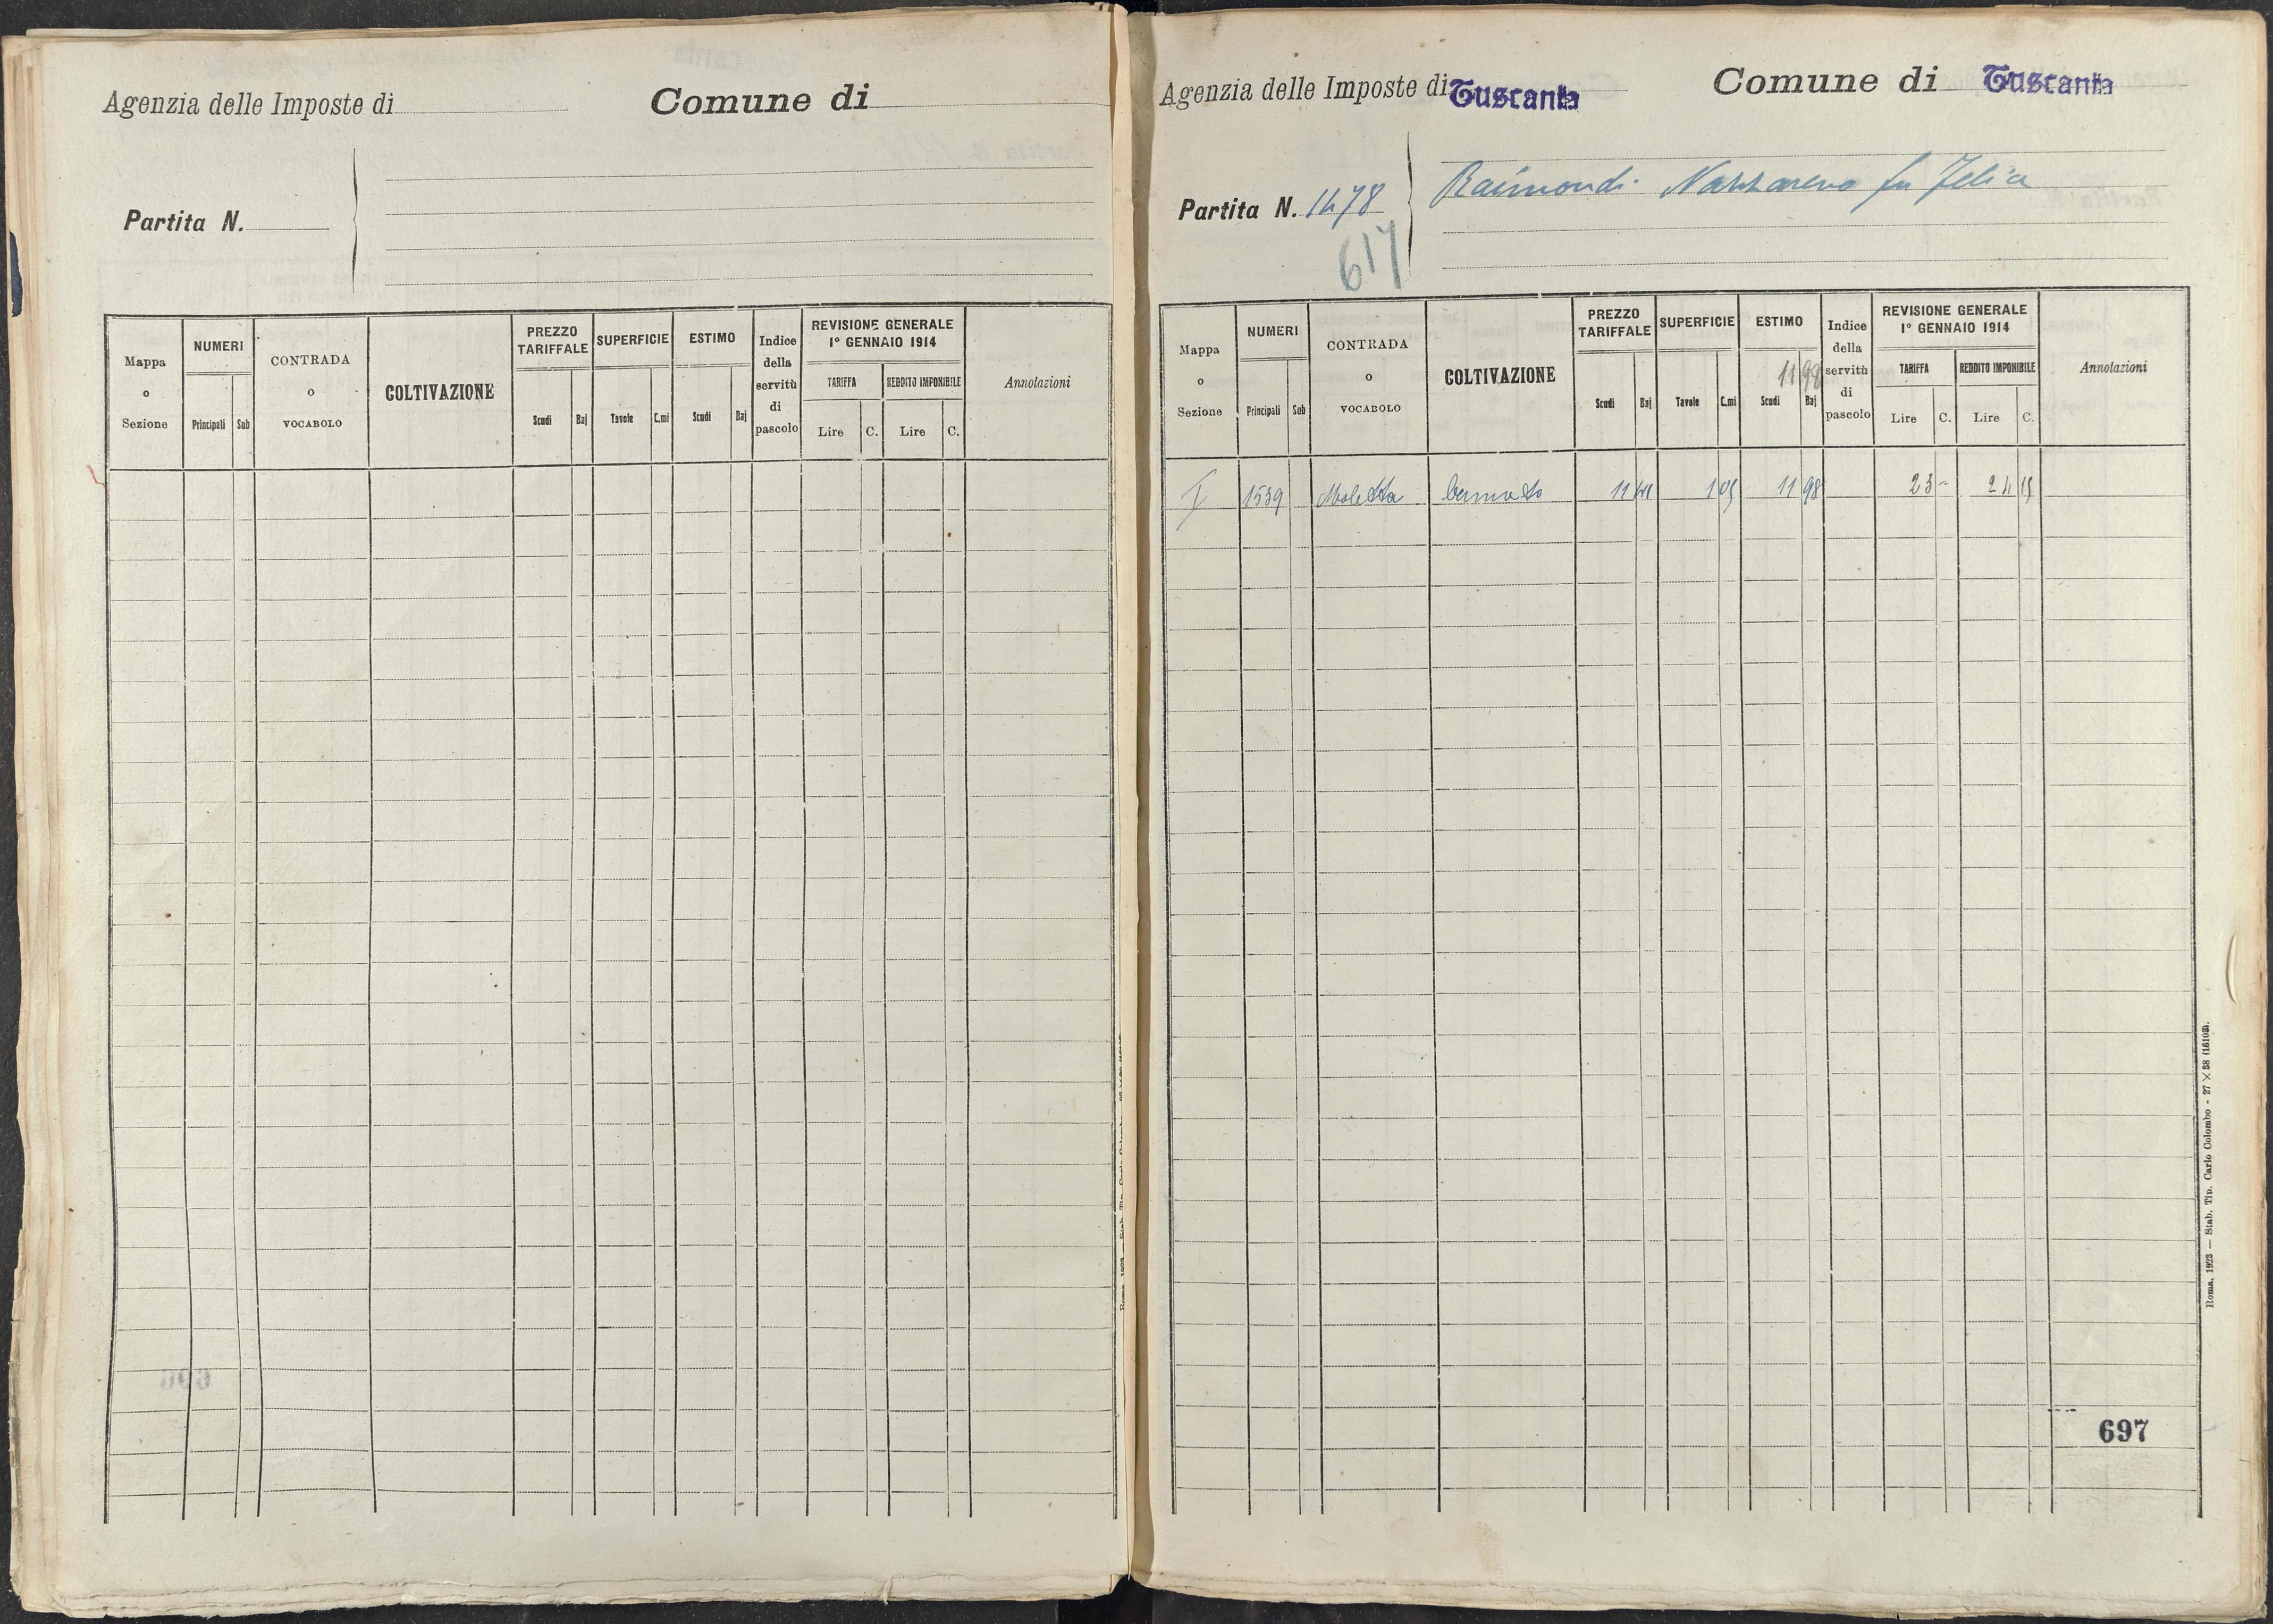 Agenzia delle Imposte di
Comune di
Partita N.
Mappa o Sezione
NUMERI
Principali
Sub
CONTRADA o VOCABOLO
COLTIVAZIONE
PREZZO TARIFFALE
Scudi
Baj
SUPERFICIE
Tavole
C.mi
ESTIMO
Scudi
Baj
Indice della servitù di pascolo
REVISIONE GENERALE
1° GENNAIO 1914
TARIFFA
REDDITO IMPONIBILE
Lire
C.
Lire
C.
Annotazioni
Agenzia delle Imposte di Tuscania
Comune di Tuscania
Partita N. 1478
617
Raimondi Nazzareno fu Felice
Mappa o Sezione
NUMERI
Principali
Sub
CONTRADA o VOCABOLO
COLTIVAZIONE
PREZZO TARIFFALE
Scudi
Baj
SUPERFICIE
Tavole
C.mi
ESTIMO
11 98
Scudi
Baj
Indice della servitù di pascolo
REVISIONE GENERALE
1° GENNAIO 1914
TARIFFA
REDDITO IMPONIBILE
Lire
C.
Lire
C.
Annotazioni
I 1539 Moletta 11 41 1 05 11 98 23 - 24 15
697
Roma, 1923 — Stab. Tip. Carlo Colombo - 27 × 38 (16102).